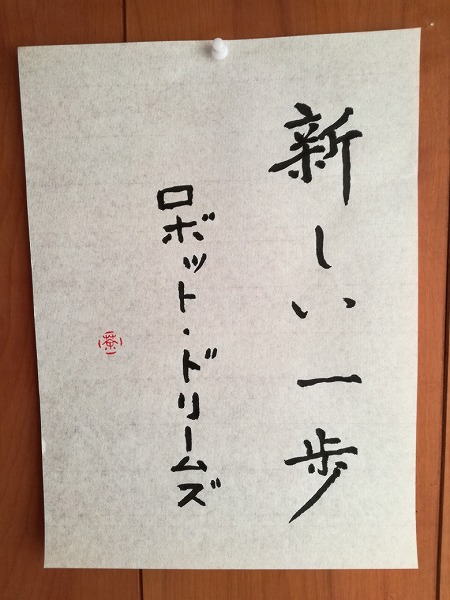 新しい一歩
ロボット・ドリームズ